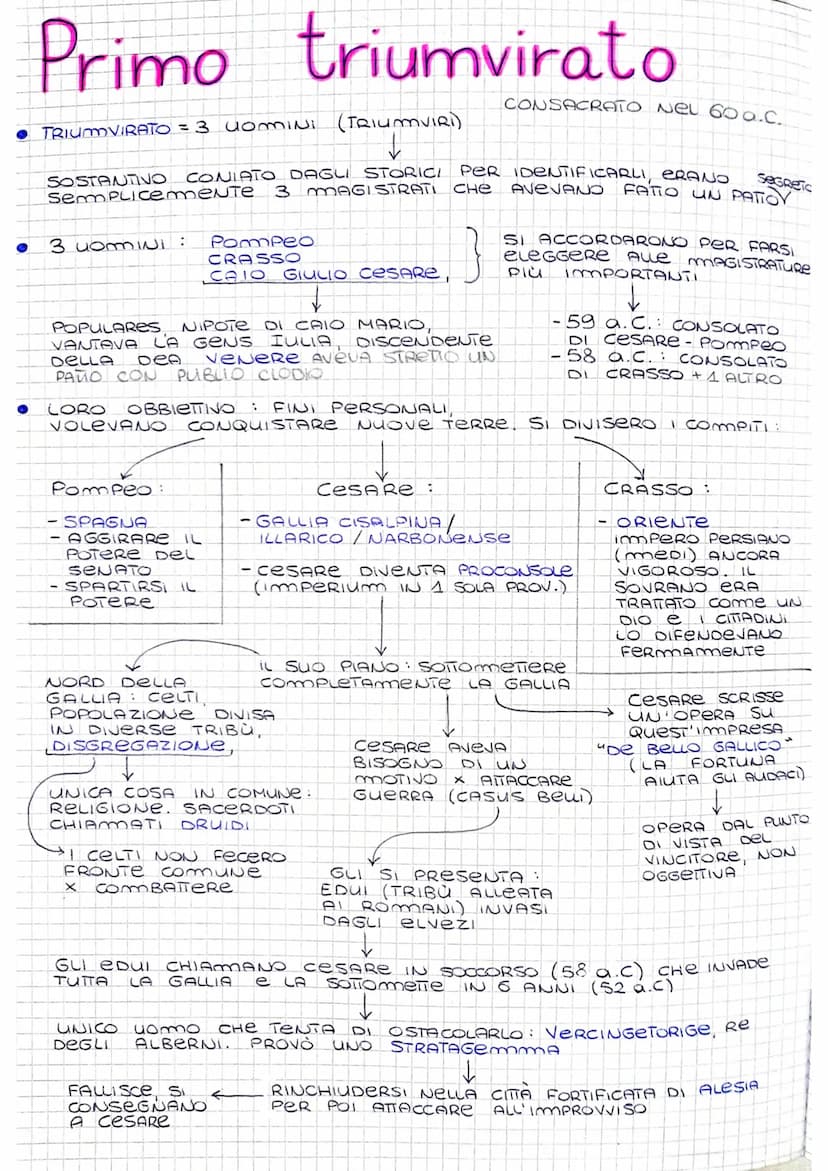 Primo triumvirato
CONSACRATO NEL 60 a.C.
• TRIUMVIRATO = 3 UOMINI (TRIUMVIRI)
SOSTANTIVO CONIATO DAGLI STORICI PER IDENTIFICARLI, ERANO
SEMPLICEMENTE 3 MAGISTRATI CHE AVEVANO FATTO UN PATTO SEGRETO
• 3 UOMINI : POMPEO
CRASSO
CAIO GIULIO CESARE,
SI ACCORDARONO PER FARSI
ELEGGERE ALLE MAGISTRATURE
PIÙ IMPORTANTI
POPULARES, NIPOTE DI CAIO MARIO,
VANTAVA L'A GENS IULIA, DISCENDENTE
DELLA DEA VENERE AVEVA STRETTO UN
PATTO CON PUBLIO CLODIO
- 59 a.C.: CONSOLATO
DI CESARE - POMPEO
- 58 a.C. : CONSOLATO
DI CRASSO + 1 ALTRO
• LORO OBBIETTIVO : FINI PERSONALI,
VOLEVANO CONQUISTARE NUOVE TERRE. SI DIVISERO I COMPITI :
POMPEO :
- SPAGNA
- AGGIRARE IL
POTERE DEL
SENATO
- SPARTIRSI IL
POTERE
CESARE :
- GALLIA CISALPINA /
ILLARICO / NARBONENSE
- CESARE DIVENTA PROCONSOLE
(IMPERIUM IN 1 SOLA PROV.)
CRASSO :
- ORIENTE
IMPERO PERSIANO
(MEDI) ANCORA
VIGOROSO. IL
SOVRANO ERA
TRATTATO COME UN
DIO E I CITTADINI
LO DIFENDEVANO
FERMAMENTE
IL SUO PIANO : SOTTOMETTERE
COMPLETAMENTE LA GALLIA
NORD DELLA
GALLIA : CELTI,
POPOLAZIONE DIVISA
IN DIVERSE TRIBÙ,
DISGREGAZIONE,
UNICA COSA IN COMUNE :
RELIGIONE. SACERDOTI
CHIAMMATI DRUIDI
I CELTI NON FECERO
FRONTE COMUNE
× COMBATTERE
CESARE AVEVA
BISOGNO DI UN
MOTIVO × ATTACCARE
GUERRA (CASUS BELLI)
CESARE SCRISSE
UN'OPERA SU
QUEST'IMPRESA
"DE BELLO GALLICO"
(LA FORTUNA
AIUTA GLI AUDACI)
OPERA DAL PUNTO
DI VISTA DEL
VINCITORE, NON
OGGETTIVA
GLI SI PRESENTA :
EDUI (TRIBÙ ALLEATA
AI ROMANI) INVASI
DAGLI ELVEZI
GLI EDUI CHIAMANO CESARE IN SOCCORSO (58 a.C) CHE INVADE
TUTTA LA GALLIA E LA SOTTOMETTE IN 6 ANNI (52 a.C)
UNICO UOMO CHE TENTA DI OSTACOLARLO : VERCINGETORIGE, RE
DEGLI ALBERNI. PROVÒ UNO STRATAGEMMMA
RINCHIUDERSI NELLA CITTÀ FORTIFICATA DI ALESIA
PER POI ATTACCARE ALL'IMPROVVISO
FALLISCE, SI
CONSEGNANO
A CESARE